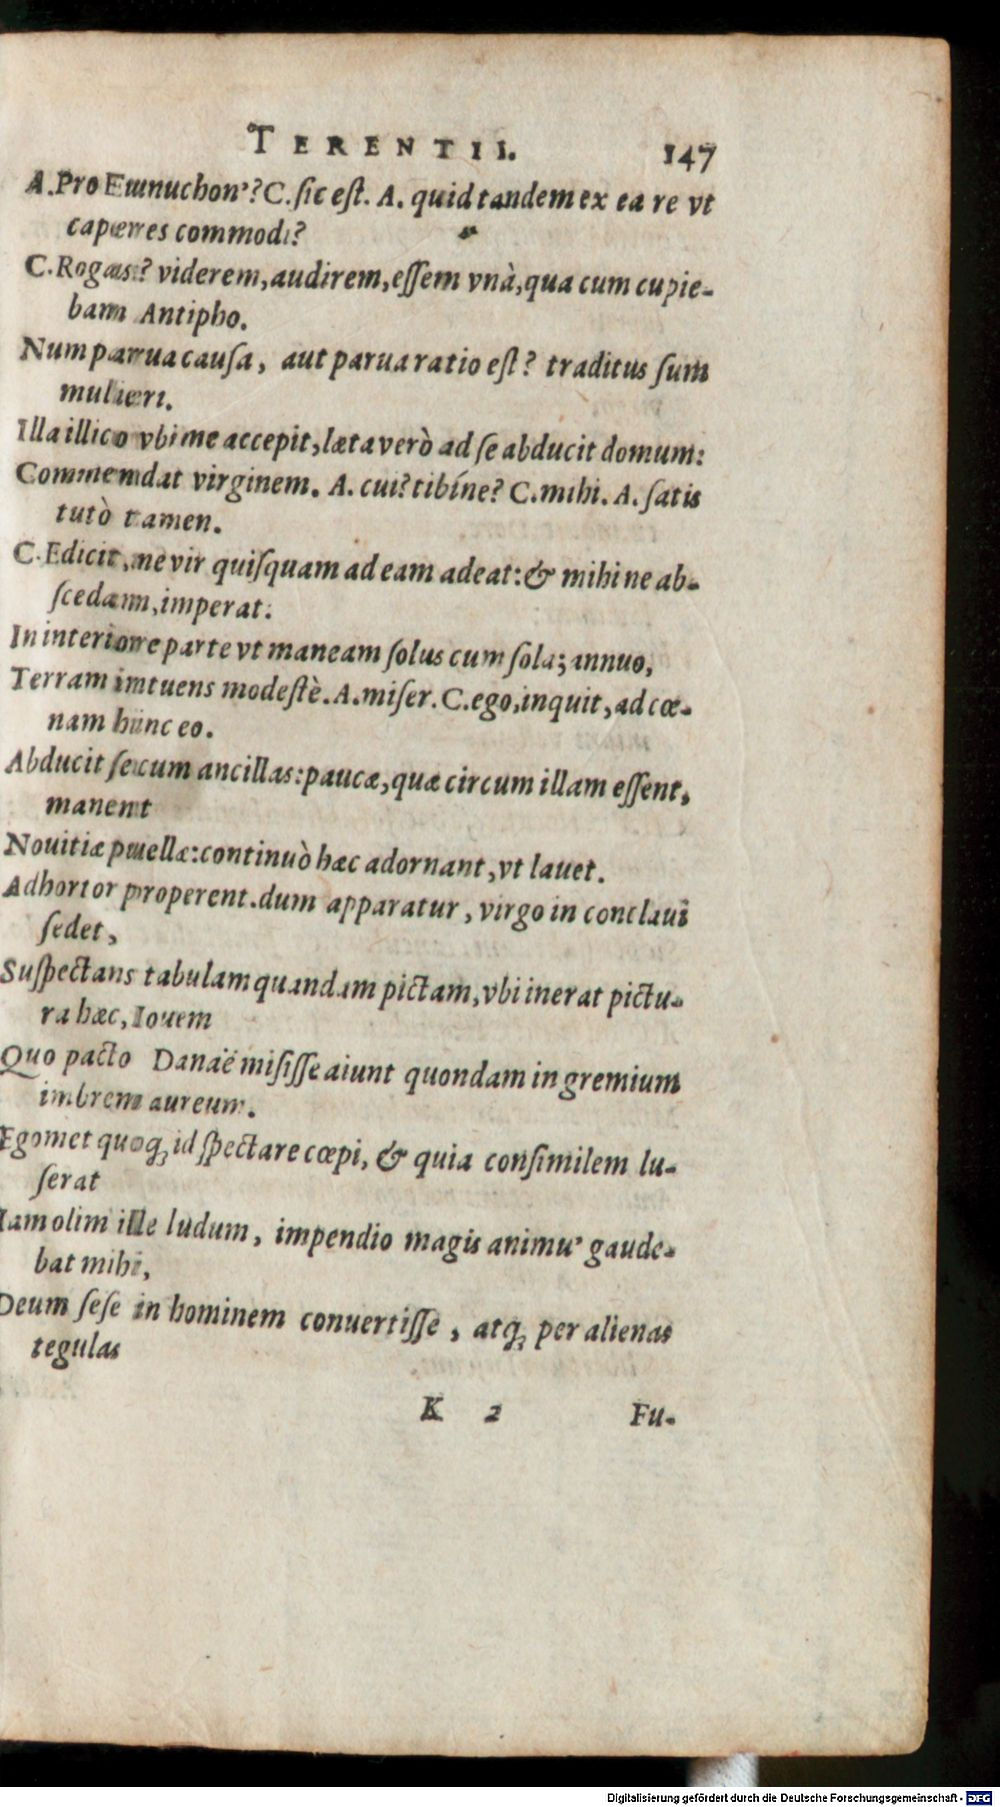 TERENTII. 147
A. Pro Eunuchon'? C. sic est. A. quid tandem ex ea re vt
caperes commodi?
C. Rogas? viderem, audirem, essem vnà, qua cum cupie-
bam Antipho.
Num parua causa, aut parua ratio est? traditus sum
mulieri.
Illa illico vbi me accepit, læta verò ad se abducit domum:
Commendat virginem. A. cui? tibíne? C. mihi. A. satis
tutò tamen.
C. Edicit, ne vir quisquam ad eam adeat: & mihi ne ab-
scedam, imperat:
In interiore parte vt maneam solus cum sola; annuo,
Terram intuens modestè. A. miser. C. ego, inquit, ad cœ-
nam hinc eo.
Abducit secum ancillas: paucæ, quæ circum illam essent,
manent
Nouitiæ puellæ: continuò hæc adornant, vt lauet.
Adhortor properent. dum apparatur, virgo in conclaui
sedet,
Suspectans tabulam quandam pictam, vbi inerat pictu-
ra hæc, Iouem
Quo pacto Danaë misisse aiunt quondam in gremium
imbrem aureum.
Egomet quoq; id spectare cœpi, & quia consimilem lu-
serat
Iam olim ille ludum, impendio magis animu' gaude-
bat mihi,
Deum sese in hominem conuertisse, atq; per alienas
tegulas
K 2 Fu-
Digitalisierung gefördert durch die Deutsche Forschungsgemeinschaft - DFG